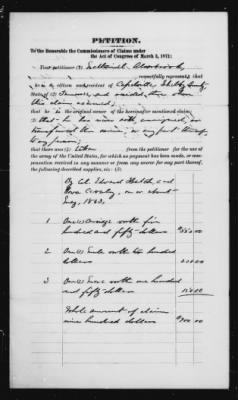 PETITION.
To the Honorable the Commissioners of Claims under
the Act of Congress of March 3, 1871:
Your petitioner (1)
respectfully represents that
he is (2) citizen and resident of Capleville Shelby County
State of Tennessee, and resided there when
this claim accrued;
that he is the original owner of the hereinbefore mentioned claim;
(3) that he has never sold, assigned, or
transferred the same, or any part thereof
to any person;
that there was (4) taken from the petitioner for the use of
the army of the United States, for which no payment has been made, or com-
pensation received in any manner or from any source for any part thereof,
the following described supplies, viz: (5)
By Col. Edward Hatch and
on or about
1863,
1 One (1) Carriage worth five
hundred and fifty dollars $550.00
2 One (1) Mule worth two hundred
dollars 200.00
3 One (1) worth one hundred
and fifty dollars 150.00
Whole amount of claim
nine hundred dollars $900.00